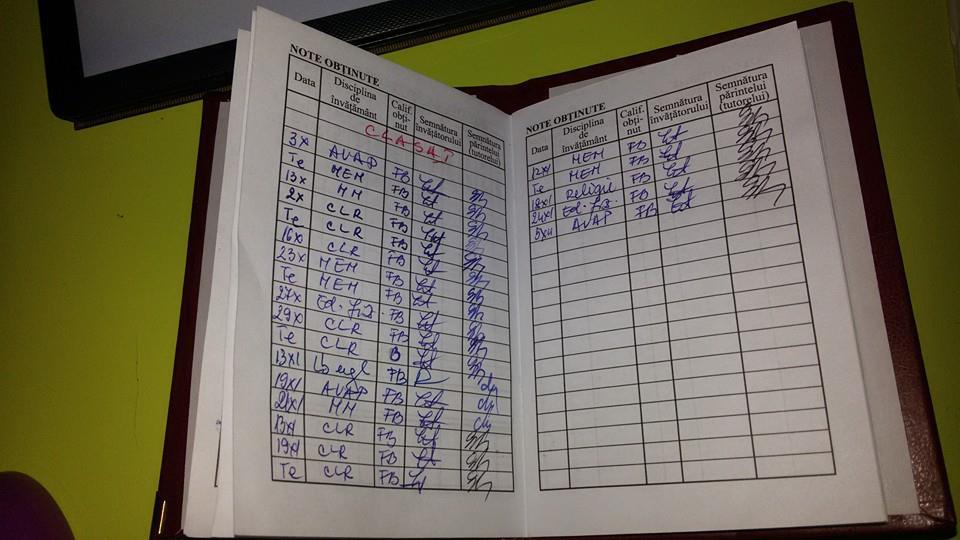 NOTE OBȚINUTE
Data Disciplina de învățământ Calif. obți- nut Semnătura învățătorului Semnătura părintelui (tutorelui)
CLASA I
3X AVAP FB
Te MEM FB
13X MM FB
2X CLR FB
Te CLR FB
16X CLR FB
23X MEM FB
Te MEM FB
27X Ed. fiz. FB
29X CLR FB
Te CLR B
13XI Lb engl FB
19XI AVAP FB
21XI MM FB
13XI CLR FB
19XI CLR FB
Te CLR FB
NOTE OBȚINUTE
Data Disciplina de învățământ Calif. obți- nut Semnătura învățătorului Semnătura părintelui (tutorelui)
12XI MEM FB
Te MEM FB
18XI Religie FB
24XI Ed. fiz. FB
5XII AVAP FB